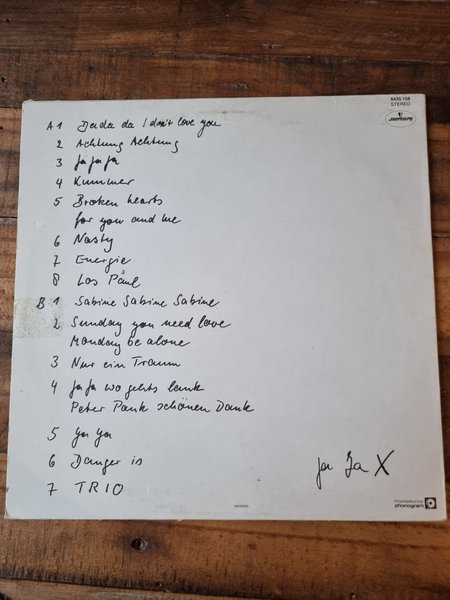 6435 158
STEREO
mercury
A 1 Da da da I don't love you
2 Achtung Achtung
3 Ja Ja Ja
4 Kummer
5 Broken hearts
for you and me
6 Nasty
7 Energie
8 Los Paul
B 1 Sabine Sabine Sabine
2 Sunday you need love
Monday be alone
3 Nur ein Traum
4 Ja Ja wo gehts lank
Peter Pank schönen Dank
5 Ya Ya
6 Danger is
7 TRIO
Ja Ja X
marketed by
phonogram